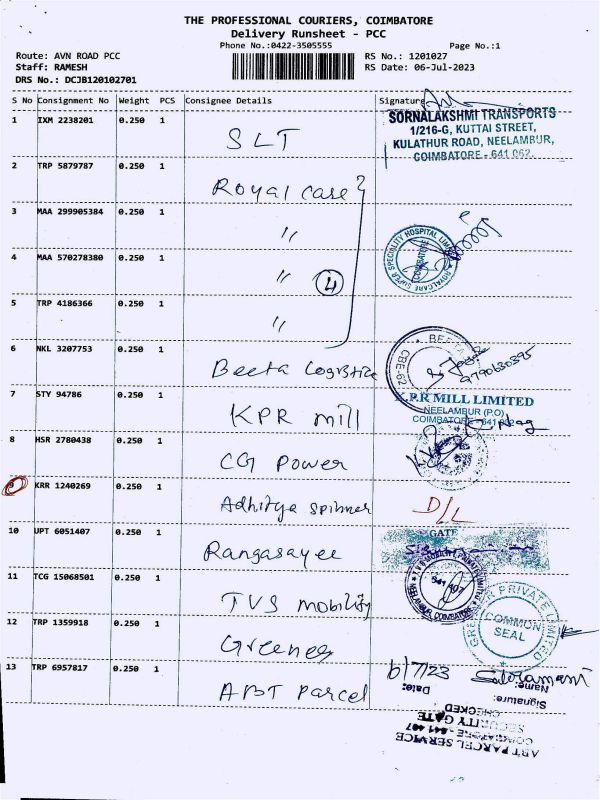 THE PROFESSIONAL COURIERS, COIMBATORE
Delivery Runsheet - PCC
Phone No.:0422-3505555
Page No.:1
Route: AVN ROAD PCC
RS No.: 1201027
Staff: RAMESH
RS Date: 06-Jul-2023
DRS No.: DCJB120102701
S No Consignment No Weight PCS Consignee Details Signature
1 IXM 2238201 0.250 1 SLT
SORNALAKSHMI TRANSPORTS
1/216-G, KUTTAI STREET,
KULATHUR ROAD, NEELAMBUR,
COIMBATORE - 641 062.
2 TRP 5879787 0.250 1 Royal case
3 MAA 299905384 0.250 1 "
4 MAA 570278380 0.250 1 " 4
ROYALCARE SUPER SPECIALITY HOSPITAL LIMITED
COIMBATORE
5 TRP 4186366 0.250 1 "
6 NKL 3207753 0.250 1 Beeta Logistics
BEETA
CBE-62
9790630395
7 STY 94786 0.250 1 KPR mill
K.P.R MILL LIMITED
NEELAMBUR (P.O)
COIMBATORE - 641 062
8 HSR 2780438 0.250 1 CG Power
9 KRR 1240269 0.250 1 Adhitya spinner
D/L
10 UPT 6051407 0.250 1 Rangasayee
GATE
11 TCG 15068501 0.250 1 TVS mobility
TVS MOBILITY PRIVATE LIMITED
641 407
NEELAMBUR, COIMBATORE
12 TRP 1359918 0.250 1 Greenes
PRIVATE LIMITED
COMMON
SEAL
13 TRP 6957817 0.250 1 ABT Parcel
6/7/23
Date:
Name:
Signature:
CHECKED
SECURITY GATE
COIMBATORE - 641 407
ABT PARCEL SERVICE